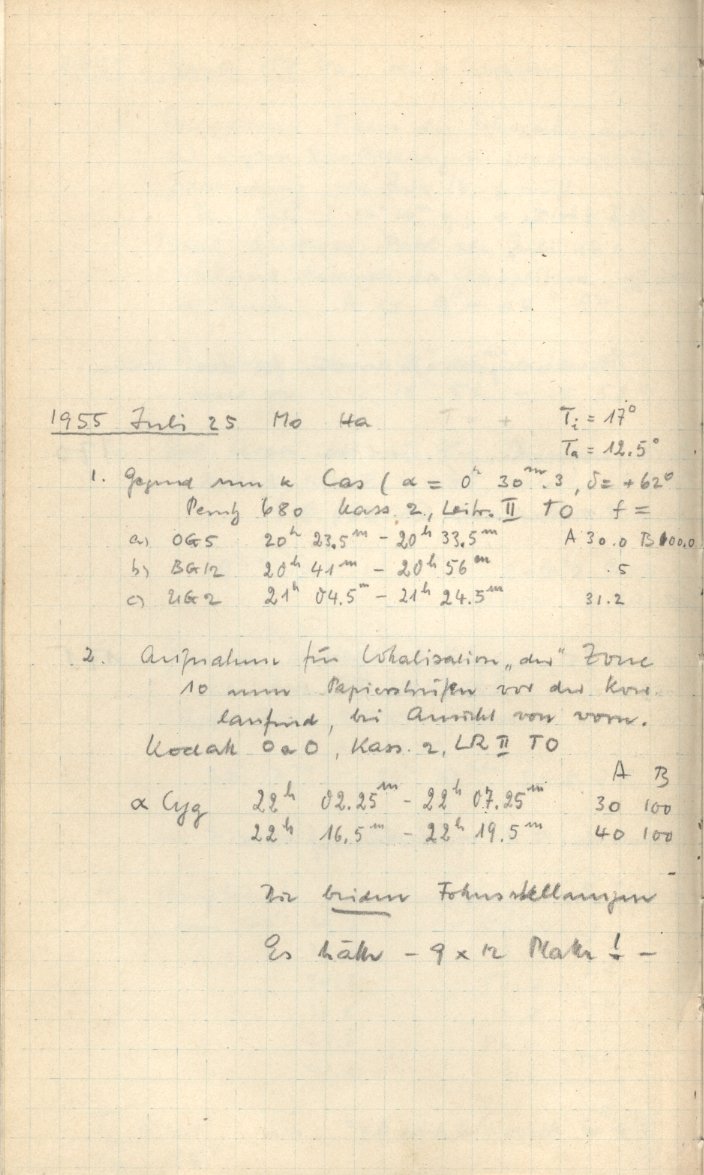 1955 Juli 25 Mo Ha Ti = 17°
Ta = 12.5°
1. Gegend um κ Cas (α = 0h 30m.3, δ = +62°
Perutz 680 Kass. 2, Leitr. II TO f =
a) OG5 20h 23.5m – 20h 33.5m A 30.0 B 100.0
b) BG12 20h 41m – 20h 56m .5
c) UG2 21h 04.5m – 21h 24.5m 31.2
2. Aufnahme für Lokalisation „der" Zone
10 mm Papierstreifen vor der
laufend, bei Ansicht von vorn.
Kodak OaO, Kass. 2, LR II TO
A B
α Cyg 22h 02.25m – 22h 07.25m 30 100
22h 16.5m – 22h 19.5m 40 100
beiden Fokusstellungen
Es – 9 x 12 Platte ! –